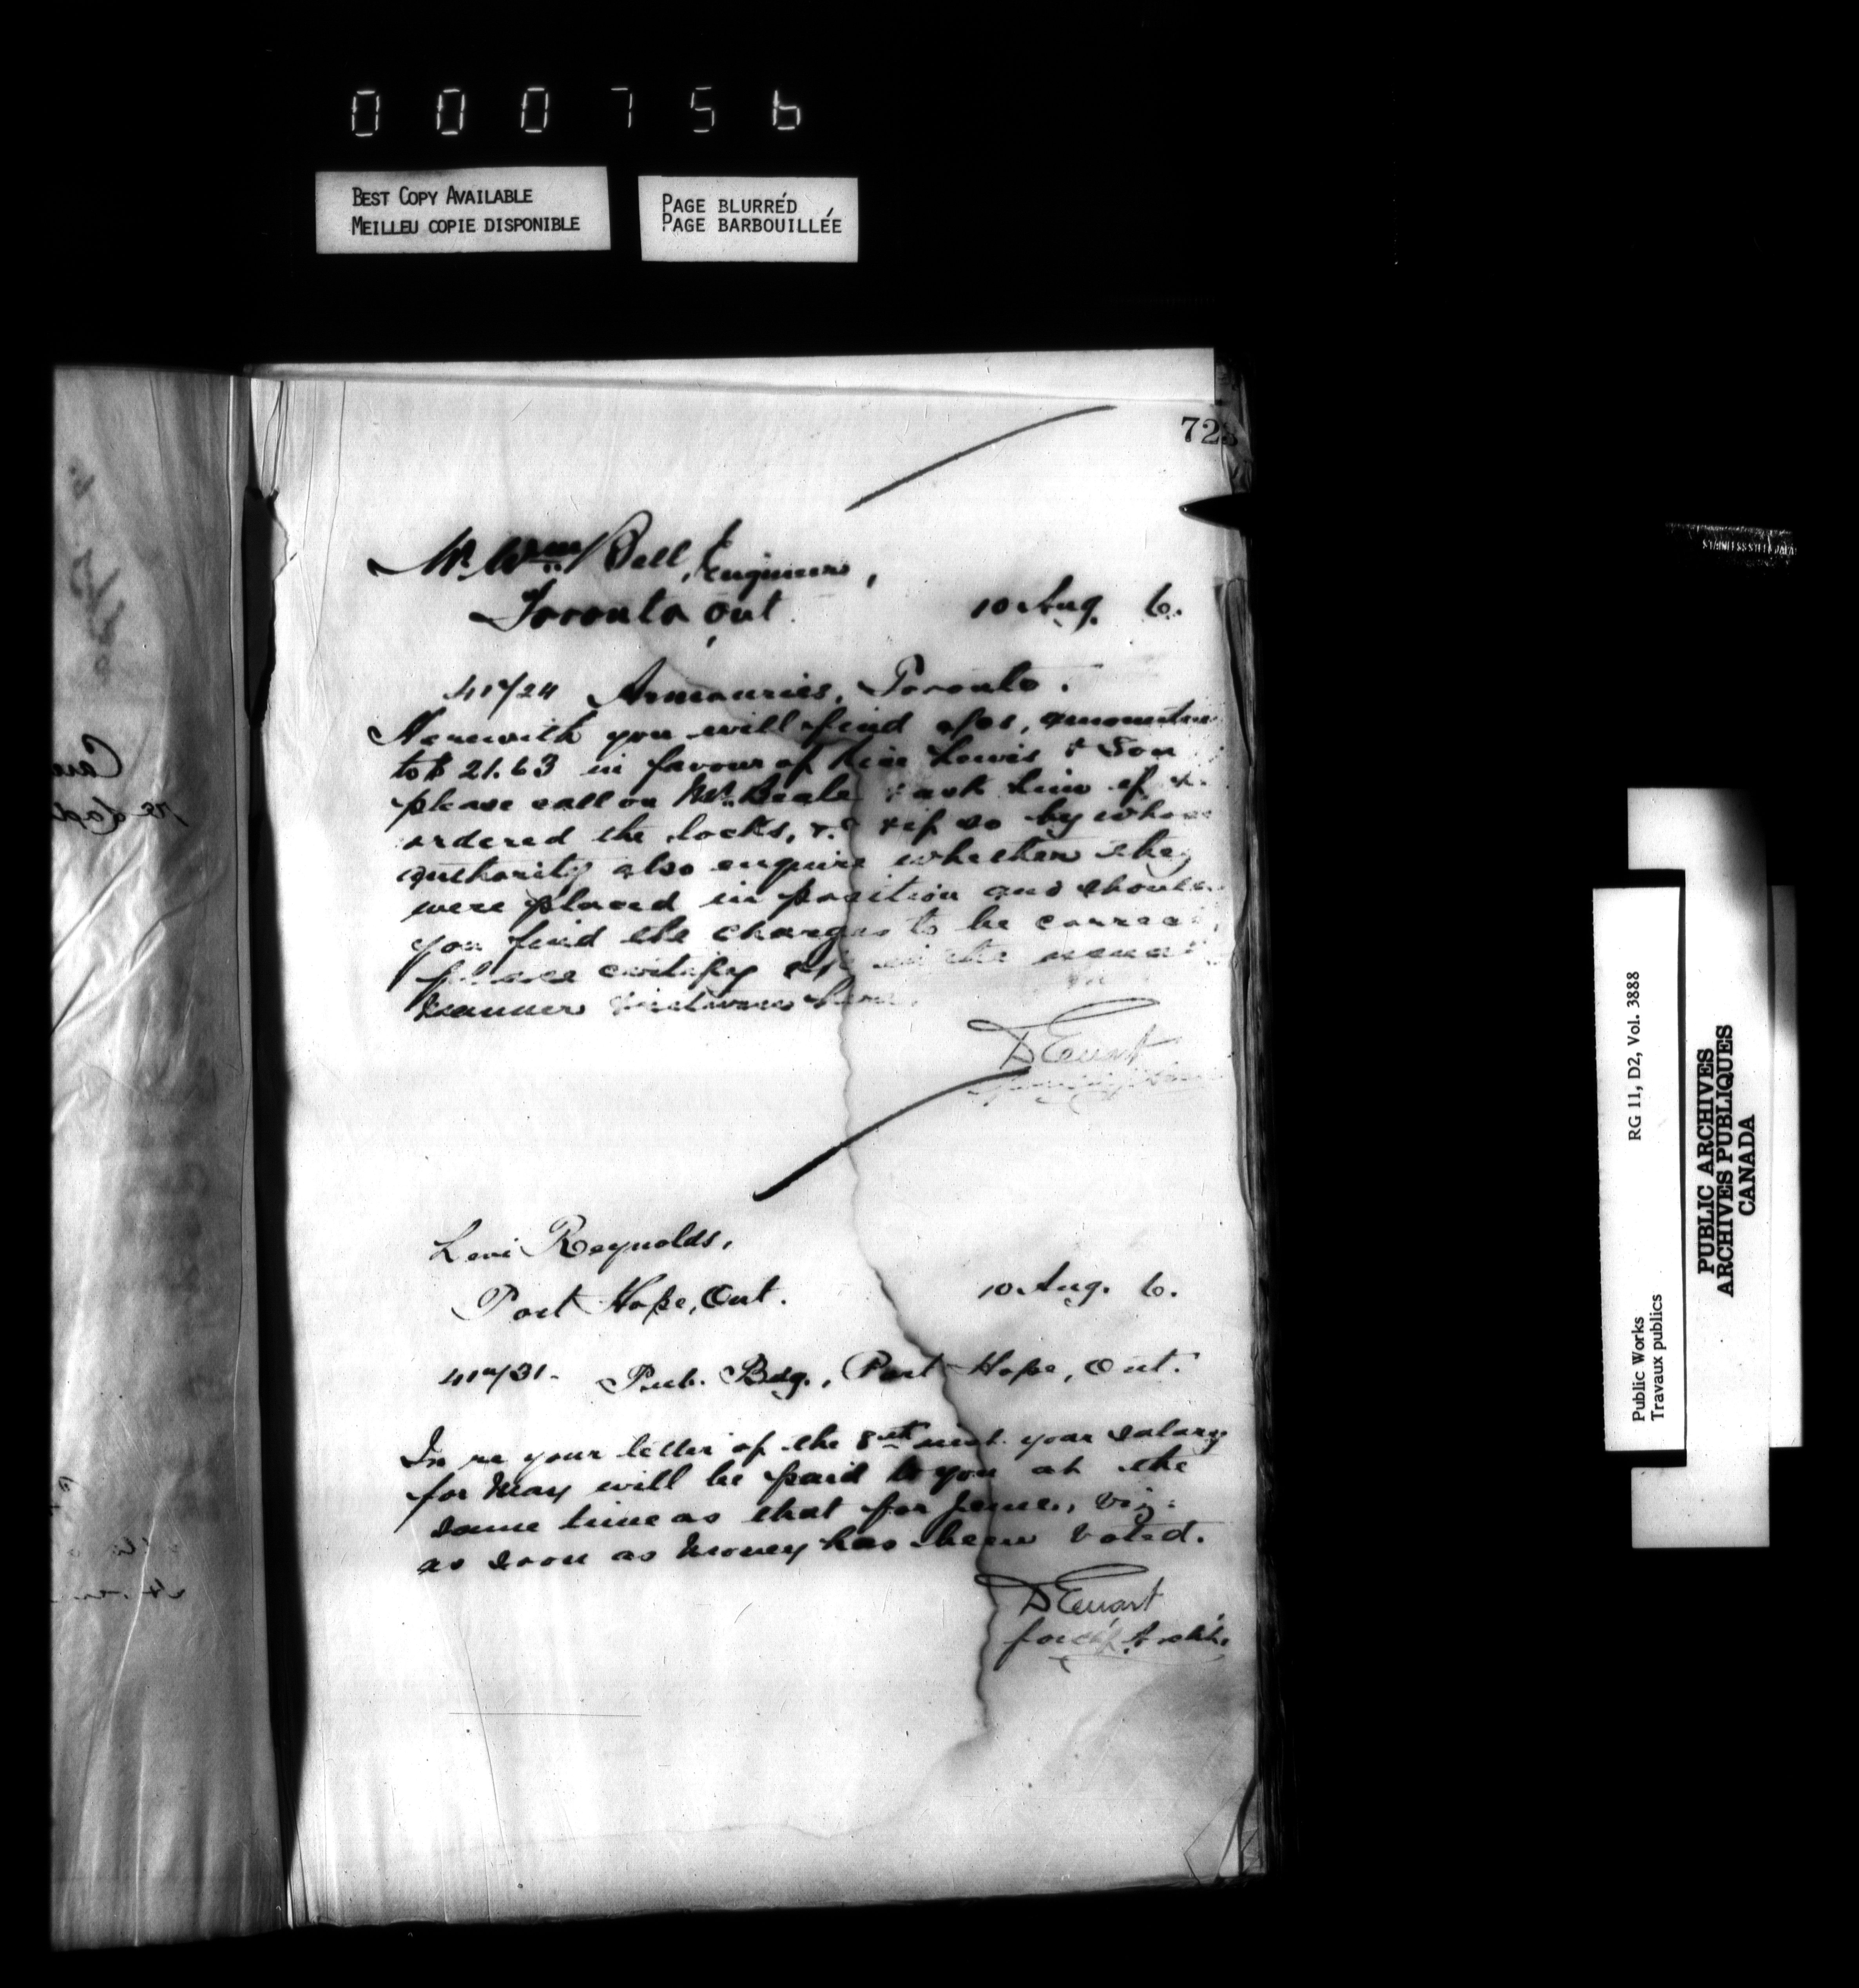 000756
BEST COPY AVAILABLE
MEILLEU COPIE DISPONIBLE
PAGE BLURRÉD
PAGE BARBOUILLÉE
72
Mr. Wm Bell, Engineer,
Toronto Ont. 10 Aug. 6.
Armouries, Toronto.
Herewith you will find a/cs, amounting
to $21.63 in favour of Rice Lewis & Son
please call on Mr. Beale & ask him if he
ordered the locks, &c & if so by whose
authority also enquire whether they
were placed in position and should
you find the charges to be correct,
please certify in the usual
manner & return here.
D Ewart
Levi Reynolds,
Port Hope, Ont. 10 Aug. 6.
Pub. Bdg., Port Hope, Ont.
In re your letter of the 8th inst. your salary
for May will be paid to you at the
same time as that for June, viz:
as soon as money has been voted.
D Ewart
for Chf Archt.
Public Works
Travaux publics
RG 11, D2, Vol. 3888
PUBLIC ARCHIVES
ARCHIVES PUBLIQUES
CANADA